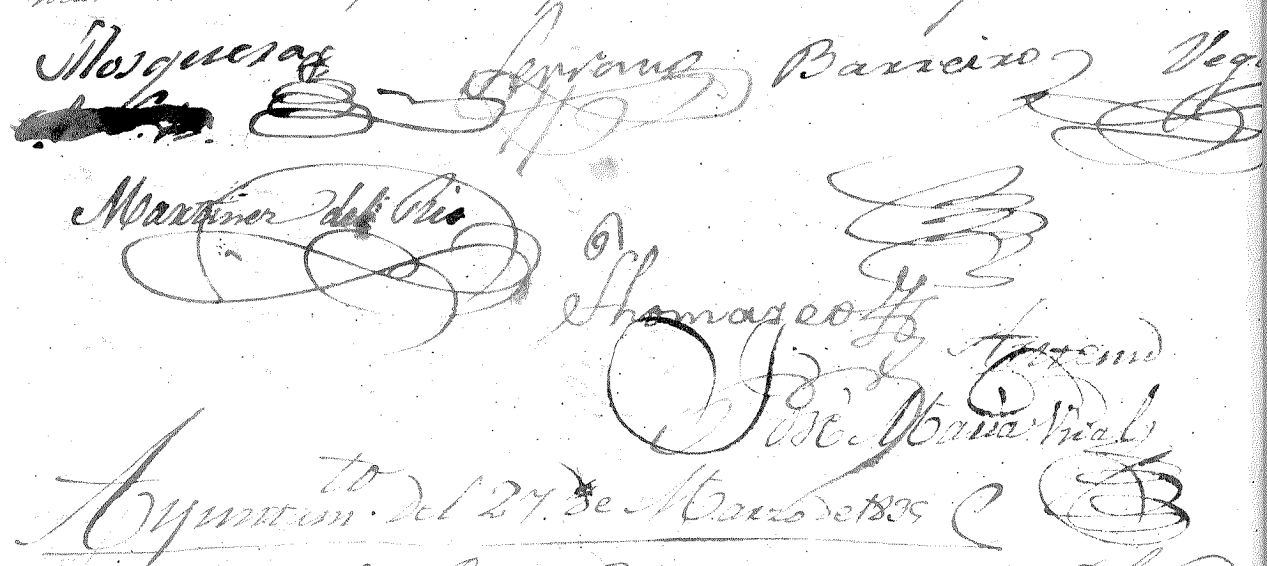 Mosquera Serrano Barreiro Vega
Martinez del Rio
Thomaseo
Antemi
José Maria Vial
Ayuntam.to del 27. de Marzo de 1835